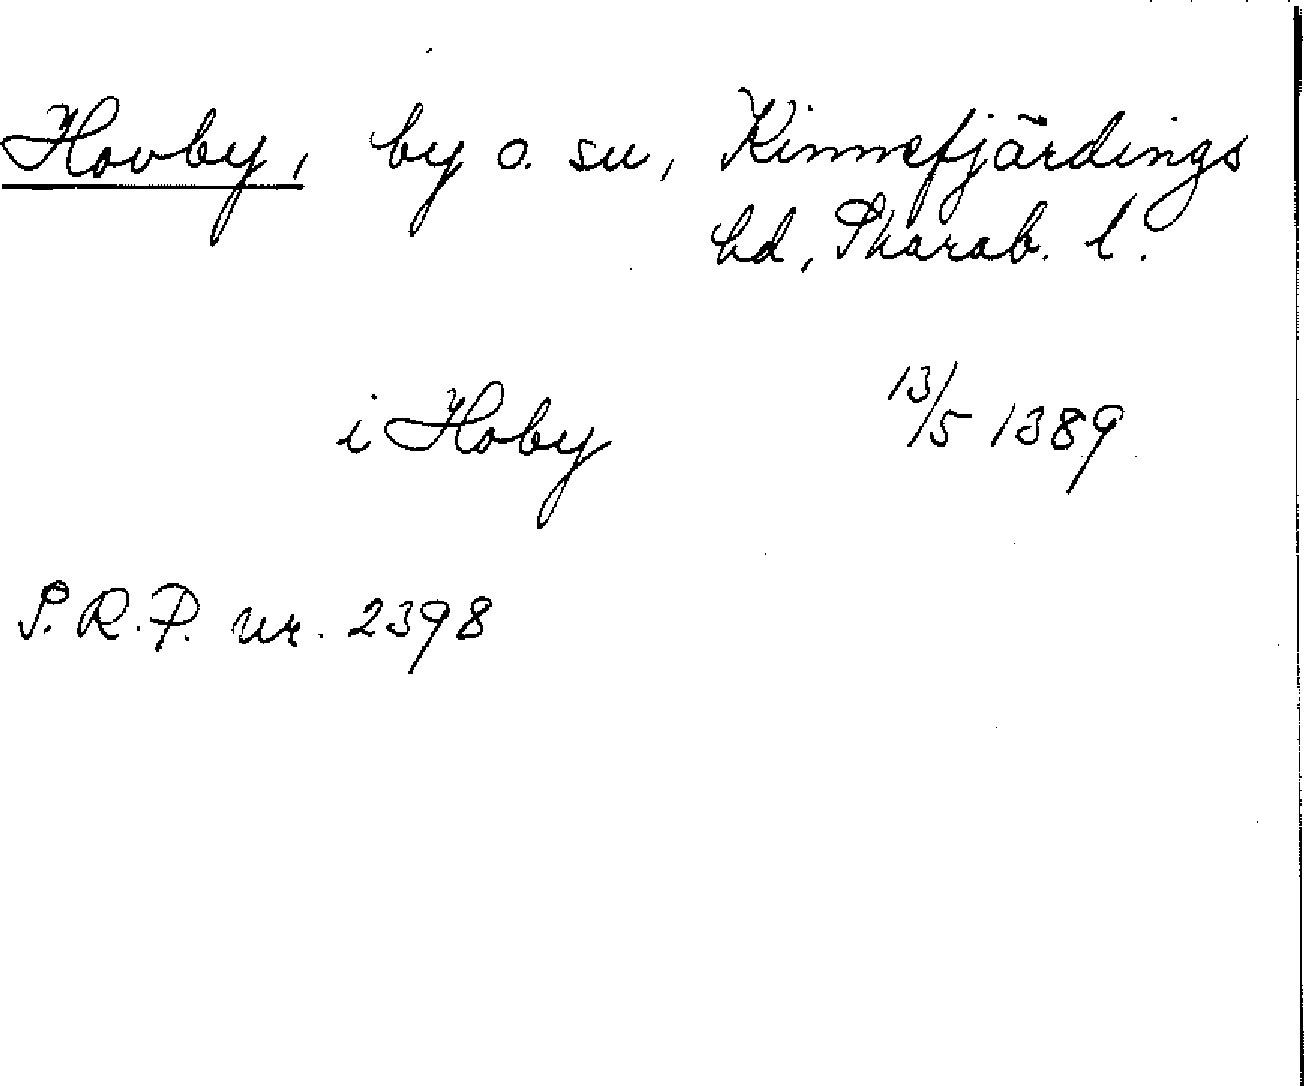 Hovby, by o. sn, Kinnefjärdings
hd, Skarab. l.
i Hoby 13/5 1389
S.R.P. nr. 2398